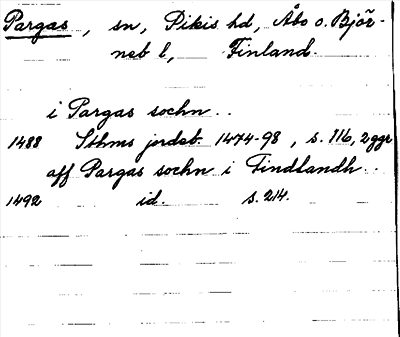 Pargas, sn, Pikis hd, Åbo o. Björ-
neb l, Finland.
i Pargas sochn..
1488 Sthms jordeb. 1474-98, s. 116, 2 ggr
aff Pargas sochn i Findlandh..
1492 id. s. 214.